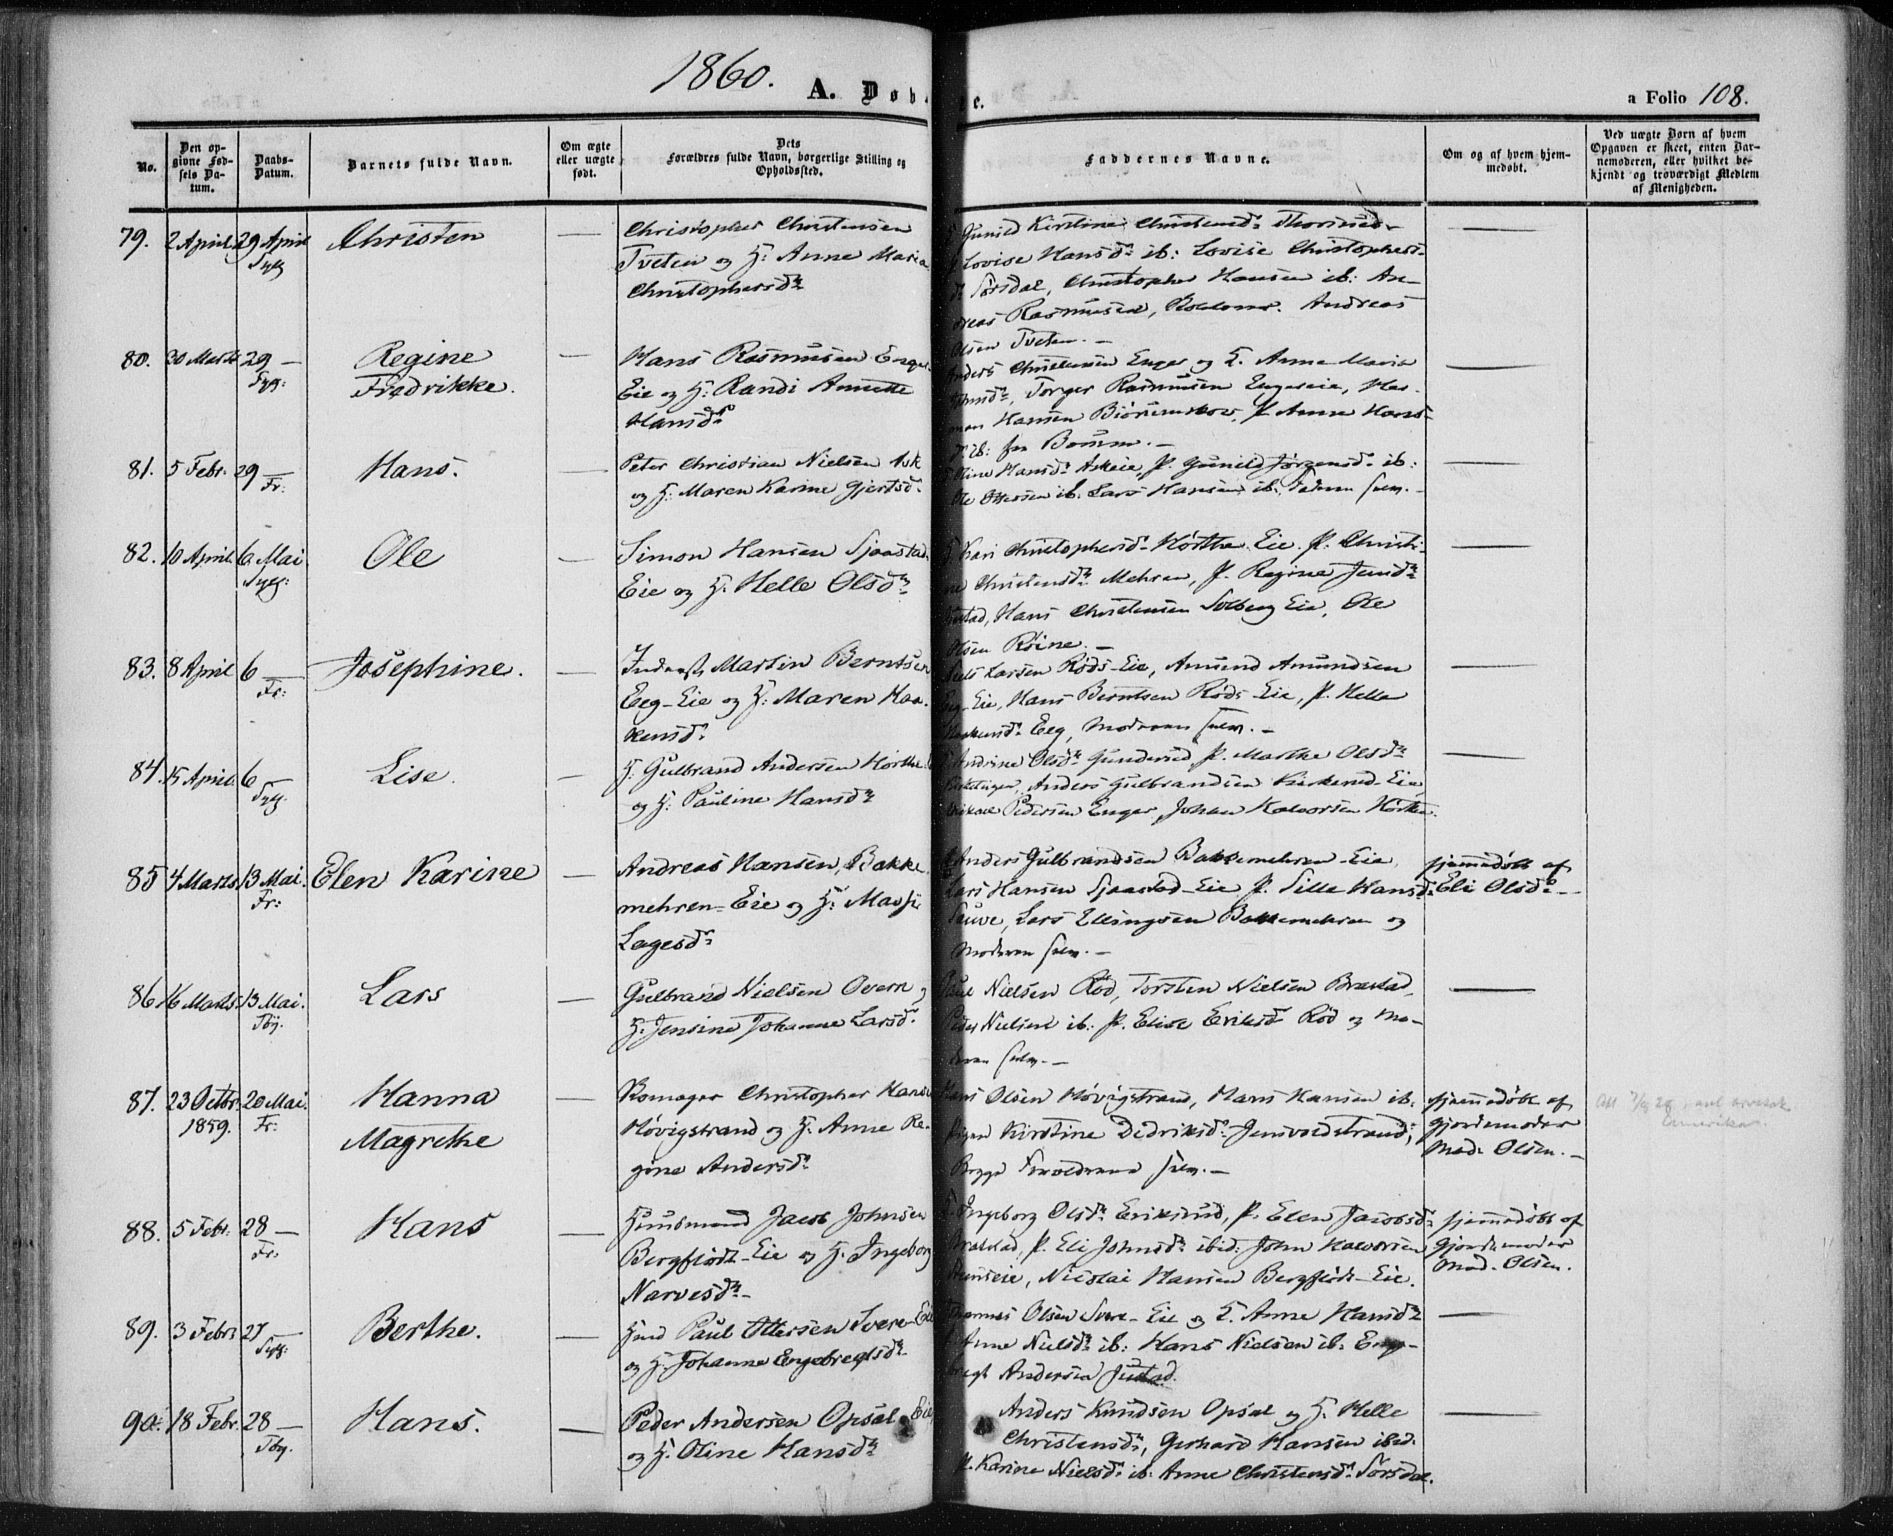 1860.
A. Døb
e.
a Folio 108.
No.
Den opgivne Fødsels Datum.
Daabs-Datum.
Barnets fulde Navn.
Om ægte eller uægte født.
Dets Forældres fulde Navn, borgerlige Stilling og Opholdssted.
Faddernes Navne.
Om og af hvem hjemmedøbt.
Ved uægte Børn af hvem Opgaven er skeet, enten Barnemoderen, eller hvilket bekjendt og troværdigt Medlem af Menigheden.
79. 2 April 29 April Christen — Christopher Christensen
Tveten og H: Anne Maria
Christophersdr
Gunild Kirstine Christensdr
Lovise Hansdr ib: Lovise Christophers-
Sørsdal, Christopher Hansen ib: An-
dreas Rasmussen, Andreas
Olsen Tveten. —
80. 30 Marts 29 — Regine — Hans Rasmussen Enger
Sylg: Fredrikke. Eie og H: Randi Annette
Hansdr
Anders Christensen Enger og H. Anne Maria
Torger Rasmussen Engereie, Has-
Hansen P. Anne Hans-
81. 5 Febr. 29 — Hans. — Peter Christian Nielsen Ask
Fr: og H: Maren Karine Gjertsdr
Oline Hansdr Askeie, P. Gunild Jørgensdr ib:
Ole Ottersen ib. Lars Hansen ib. Faderen selv. —
82. 10 April 6 Mai Ole — Simon Hansen Sjaastad
Sylg: Eie og H. Helle Olsdr
Kari Christophersdr Hørthe Eie. P. Christi-
ne Christensdr Mehren, P. Regine
Hans Christensen Solberg Eie, Ole
Olsen Røine. —
83. 8 April 6 — Josephine. — Martin Berntsen
Fr: Eeg-Eie og H: Maren Haa-
kensdr
Niels Larsen Røds-Eie, Amund Amundsen
Eeg-Eie, Hans Berntsen Røds-Eie, P. Helle
Haakensdr Eeg, Moderen selv. —
84. 15 April 6 — Lise. — H. Gulbrand Andersen Hørthe
Sylg. og H. Pauline Hansdr
Andrine Olsdr Gunderud P. Marthe Olsdr
Anders Gulbrandsen Kirkerud-Eie
Pedersen Enger, Johan Halvorsen Hørthe.
85 4 Marts 13 Mai. Elen Karine — Andreas Hansen, Bakke
Fr: mehren-Eie og H:
Lagesdr
Anders Gulbrandsen Bakkemehren-Eie,
Lars Hansen Sjaastad-Eie P. Sille Hansdr
Sauve, Lars Ellingsen Bakkemehren og
Moderen selv. —
hjemmedøbt af
Eli Olsdr —
86 16 Marts 13 Mai. Lars — Gulbrand Nielsen Overn og
H. Jensine Johanne Larsdr
Paul Nielsen Rød, Torsten Nielsen Brastad,
Peder Nielsen ib: P. Elise Eriksdr Rød og Mo-
deren selv. —
87. 23 Octbr. 20 Mai. Hanna — Komager Christopher Hansen
1859. Fr: Magrethe Høvigstrand og H. Anne Re-
gine Andersdr
Hans Olsen Høvigstrand, Hans Hansen ib:
Pigen Kirstine Didriksdr Jensvoldstrand,
Begge Forældrene selv. —
hjemmedøbt af
Gjordemoder
Mad. Olsen. —
88. 5 Febr. 28 — Hans — Huusmand Jacob Johnsen
Fr. Bergflødt-Eie og H. Ingeborg
Narvesdr —
Ingeborg Olsdr Eriksrud, P. Elen Jacobsdr
P. Eli Johnsdr ibid: John Halvorsen
Nicolai Hansen Bergflødt-Eie.
hjemmedøbt af
Gjordemoder
Mad. Olsen.
89. 3 Febr. 27 — Berthe. — Paul Ottersen Svere-Eie
Sylg: og H. Johanne Engebregtsdr
Thomas Olsen Svere-Eie og H. Anne Hansdr
Anne Nielsdr ib: Hans Nielsen ib: Enge-
bregt Andersen Justad.
90. 18 Febr. 28 — Hans. — Peder Andersen Opsal-Eie
og H. Oline Hansdr
Anders Knudsen Opsal og H. Helle
Christensdr, Gerhard Hansen ibid.
P. Karine Nielsdr ib: Anne Christensdr Sørsdal.